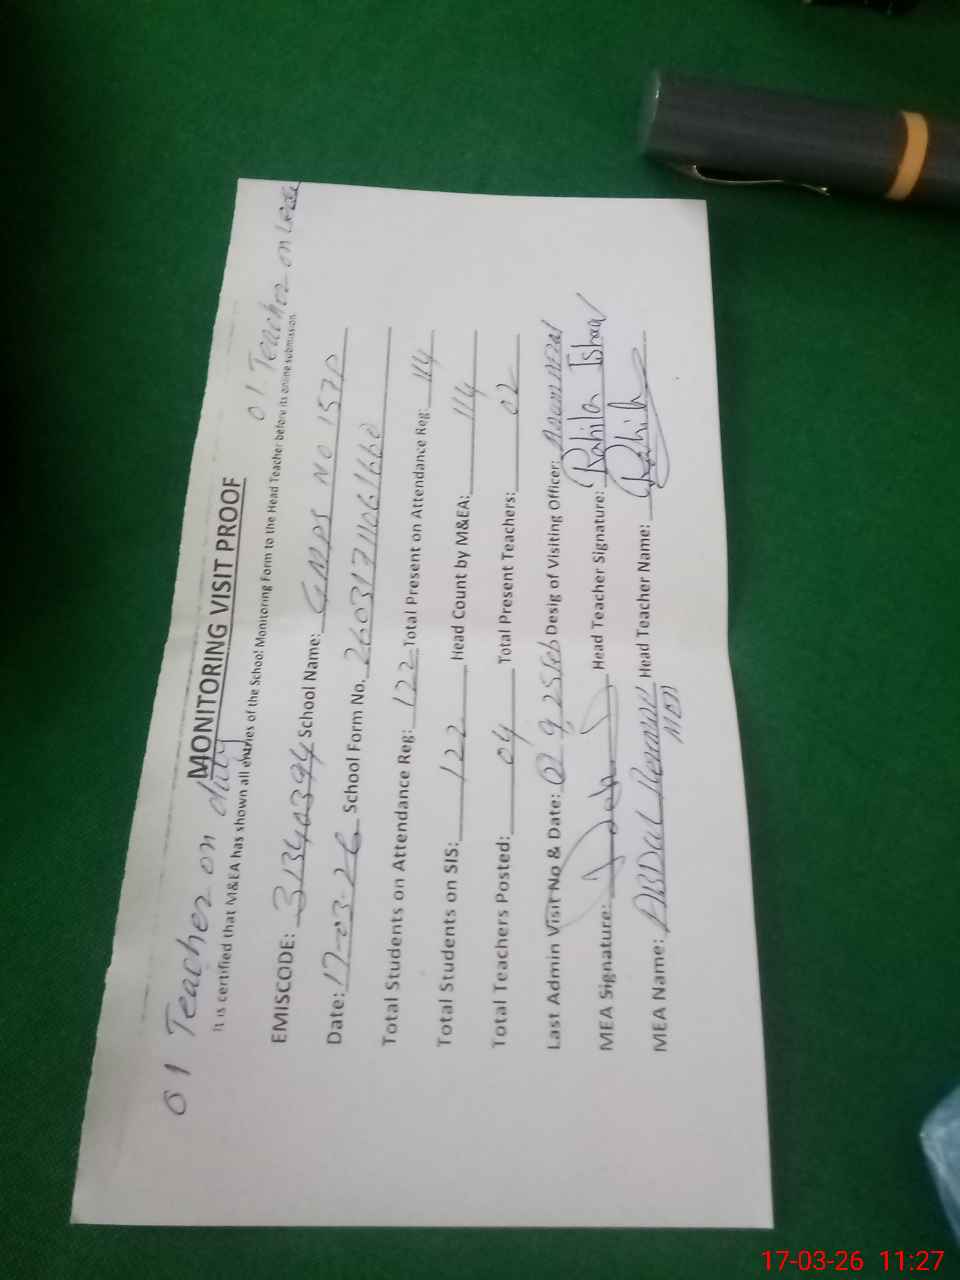 01 Teacher on duty
MONITORING VISIT PROOF
01 Teacher on Leave
It is certified that M&EA has shown all entries of the School Monitoring Form to the Head Teacher before its online submission.
EMISCODE: 31340394 School Name: GMPS NO 1570
Date: 17-03-26 School Form No.
Total Students on Attendance Reg: 122 Total Present on Attendance Reg: 114
Total Students on SIS: 122 Head Count by M&EA: 114
Total Teachers Posted: 04 Total Present Teachers: 02
Last Admin Visit No & Date: 25 Feb Desig of Visiting Officer:
MEA Signature: Head Teacher Signature: Rahila Ishaq
MEA Name: ABDul Rehman Head Teacher Name: Rahila
17-03-26 11:27